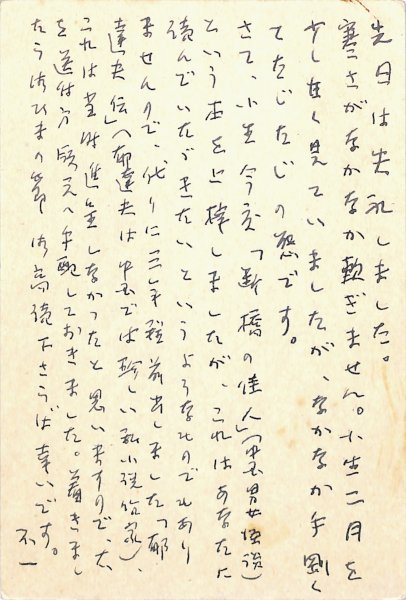 先日は失礼しました。
寒さがなかなか和ぎません。小生二月を
少し甘く見ていましたが、なかなか手剛く
てたじたじの態です。
さて、小生今度「断橋の佳人」(中国男女怪談)
という本を上梓しましたが、これはあなたに
読んでいただきたいというようなものでもあり
ませんので、代りに三年程前出しました「郁
達夫伝」(郁達夫は中国では珍しい私小説作家)、
これは当時進呈しなかったと思いますので、一
を送付方版元へ手配しておきました。着きまし
たらおひまの節御高読下さらば幸いです。
不一